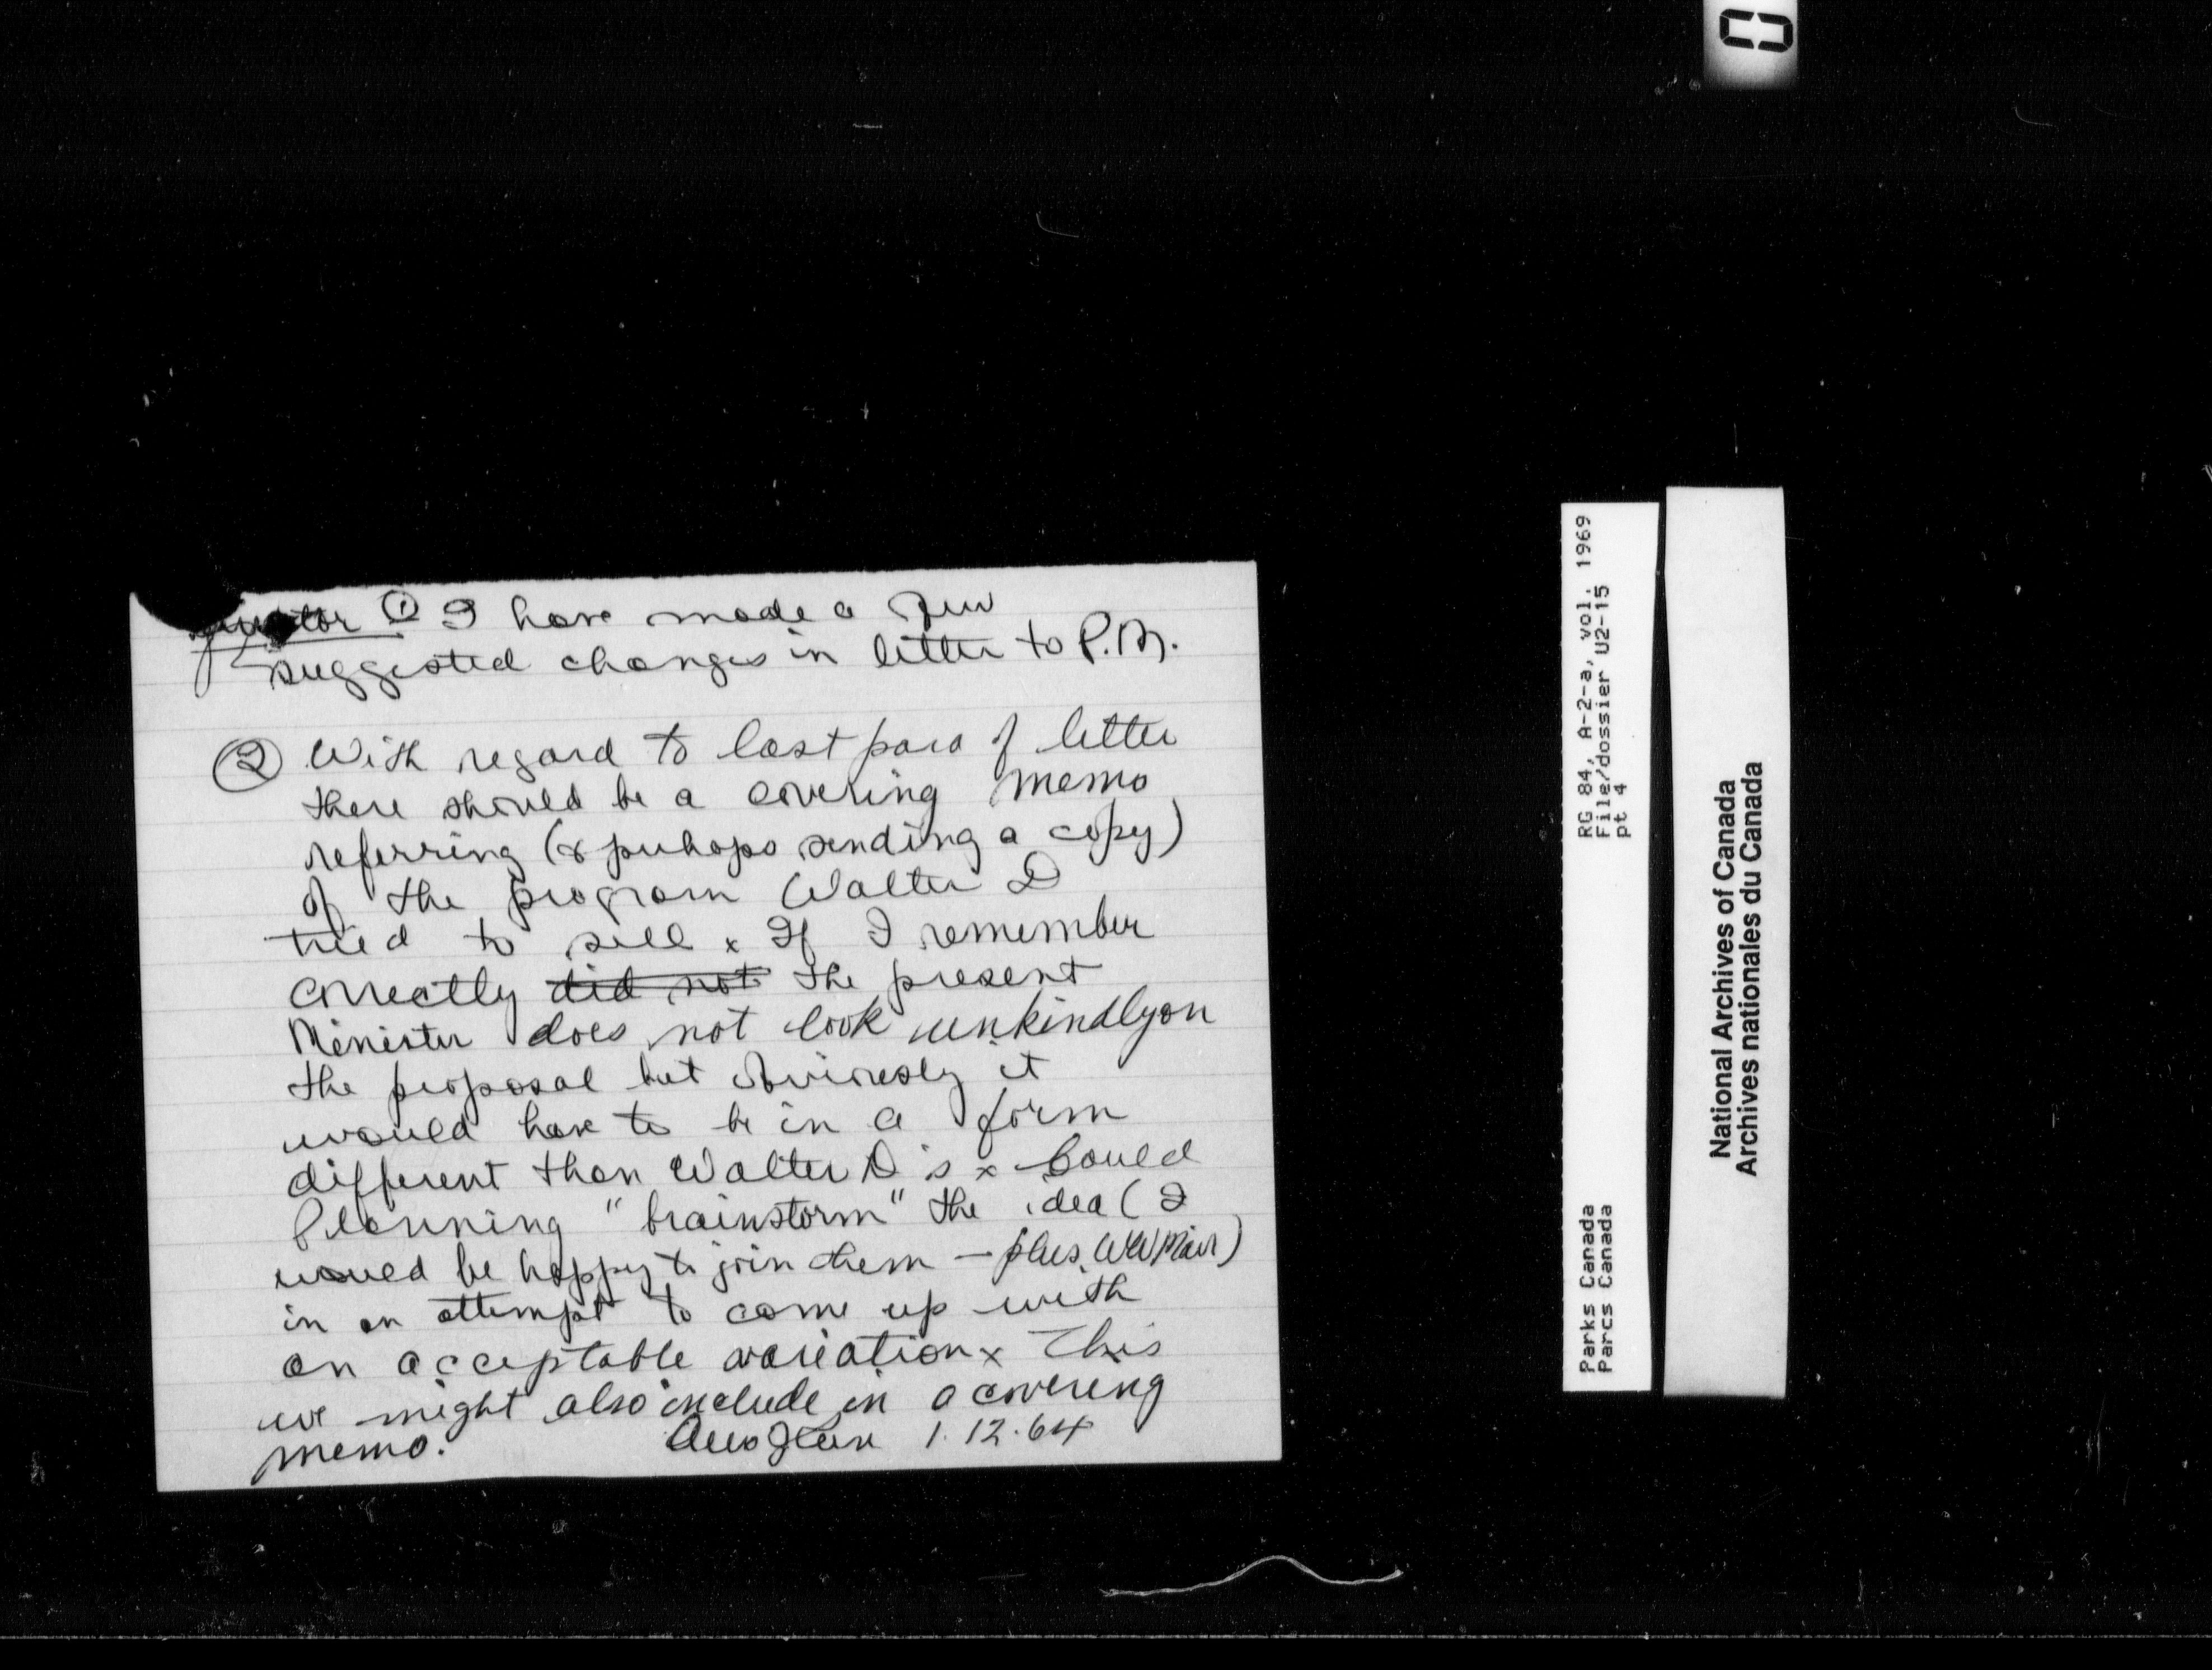 ① I have made a few
suggested changes in letter to P.M.
② With regard to last para of letter
there should be a covering memo
referring (& perhaps sending a copy)
of the program Walter D
tried to sell x If I remember
correctly did not the present
Minister does not look unkindly on
the proposal but obviously it
would have to be in a form
different than Walter D's x Could
Planning "brainstorm" the idea (I
would be happy to join them - plus WW Mair)
in an attempt to come up with
an acceptable variation x This
we might also include in a covering
memo. 1.12.64
RG 84, A-2-a, vol. 1969
File/dossier U2-15
pt 4
Parks Canada
Parcs Canada
National Archives of Canada
Archives nationales du Canada